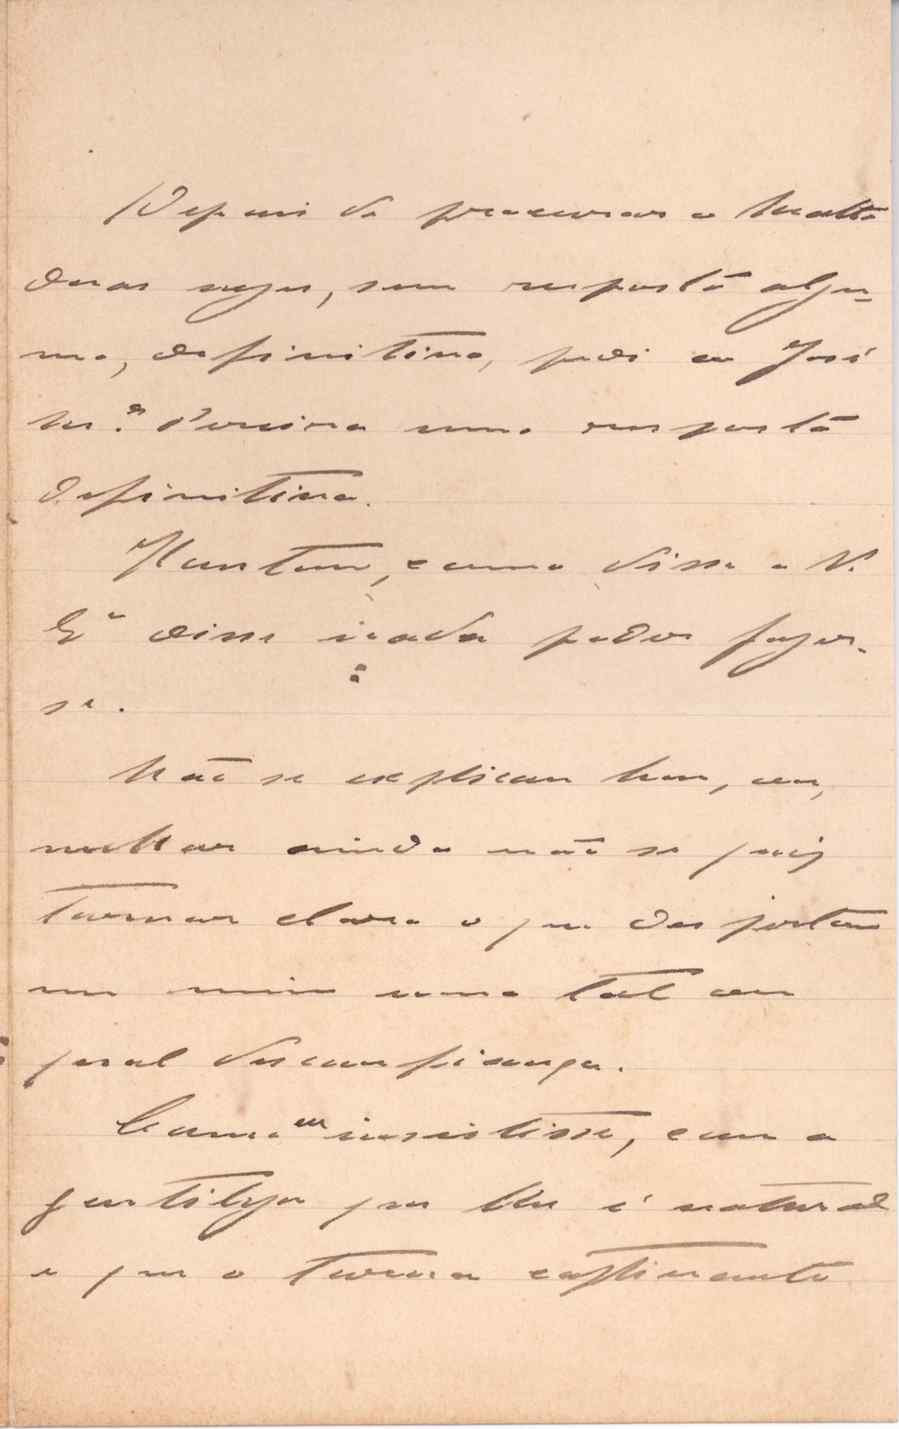 Depois de procurar o Motta
duas vezes, sem resposta algu-
ma, definitiva, pedi ao José
M.ª Pereira uma resposta
definitiva.
Hontem, como disse a V.
Exª disse nada poder fazer-
se.
Não se explicou bem, ou,
melhor ainda não se quiz
tornar claro o que despertou
em mim uma tal ou
qual desconfiança.
Como eu insistisse, com a
gentileza que lhe é natural
e que o torna captivante